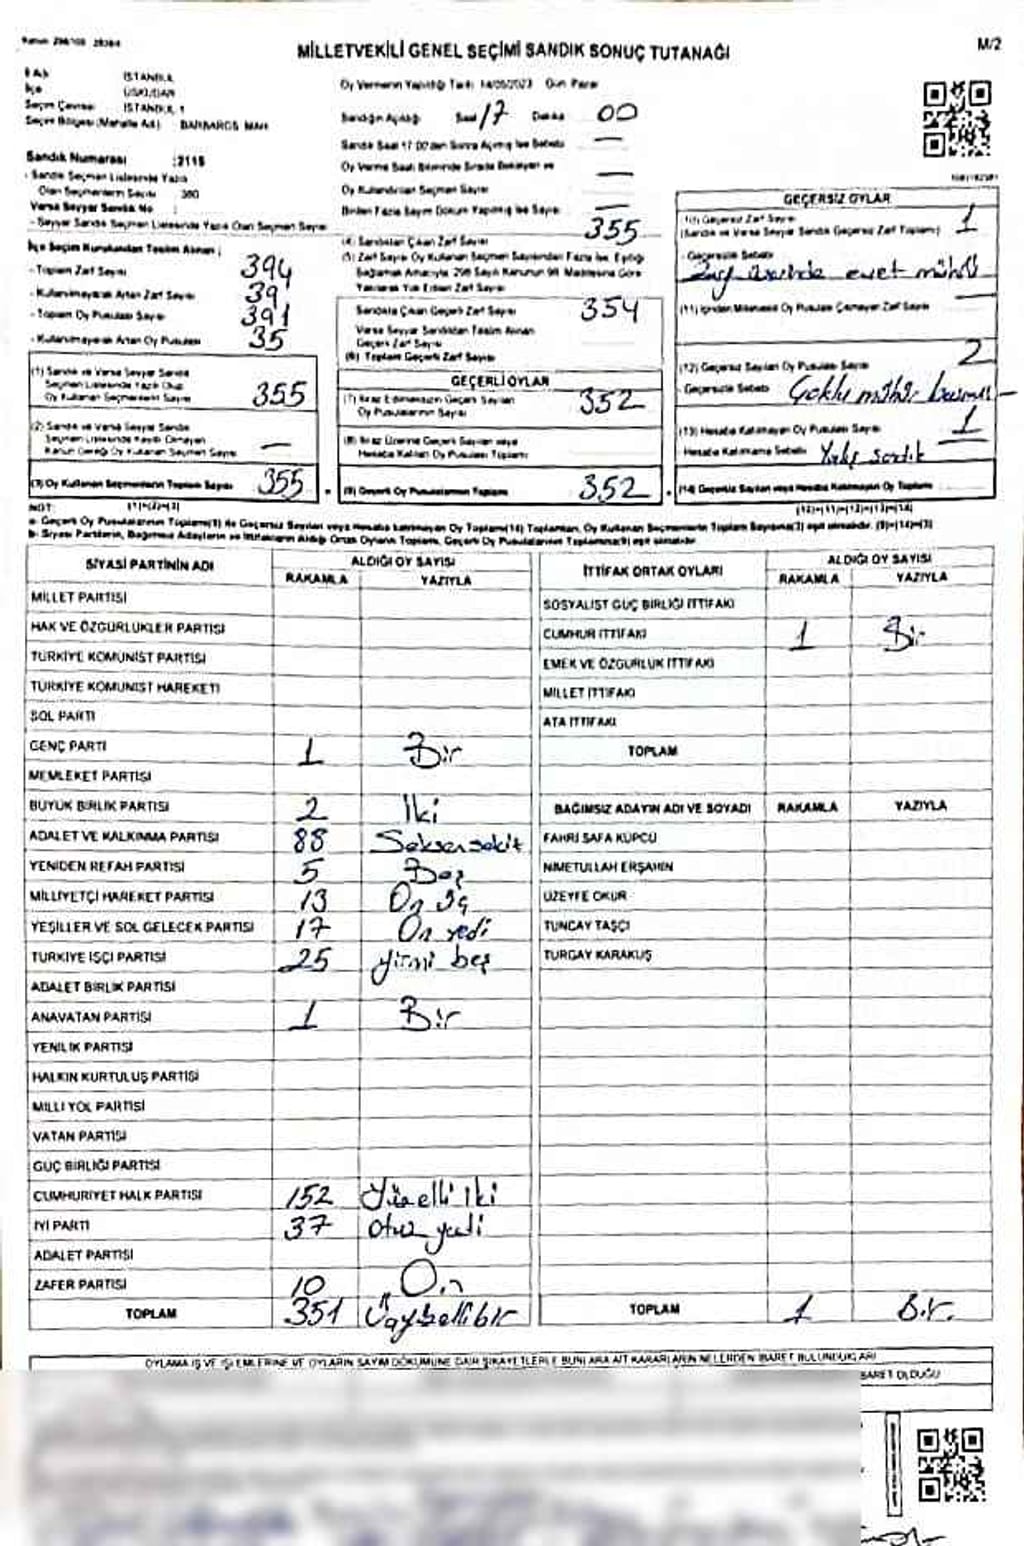 MİLLETVEKİLİ GENEL SEÇİMİ SANDIK SONUÇ TUTANAĞI
M/2
İli İSTANBUL
İlçe ÜSKÜDAR
Seçim Çevresi İSTANBUL 1
Seçim Bölgesi (Mahalle Adı) : BARBAROS MAH
Sandık Numarası : 2115
- Sandık Seçmen Listesinde Yazılı
Olan Seçmenlerin Sayısı : 380
Varsa Seyyar Sandık No :
- Seyyar Sandık Seçmen Listesinde Yazılı Olan Seçmen Sayısı
İlçe Seçim Kurulundan Teslim Alınan ;
- Toplam Zarf Sayısı 394
- Kullanılmayarak Artan Zarf Sayısı 39
- Toplam Oy Pusulası Sayısı 391
- Kullanılmayarak Artan Oy Pusulası 35
(1) Sandık ve Varsa Seyyar Sandık
Seçmen Listesinde Yazılı Olup
Oy Kullanan Seçmenlerin Sayısı 355
(2) Sandık ve Varsa Seyyar Sandık
Seçmen Listesinde Kaydı Olmayan
Kanun Gereği Oy Kullanan Seçmen Sayısı —
(3) Oy Kullanan Seçmenlerin Toplam Sayısı 355
(1)+(2)=(3)
Oy Vermenin Yapıldığı Tarih 14/05/2023 Gün Pazar
Sandığın Açıldığı Saat 17 Dakika 00
Sandık Saat 17.00'den Sonra Açılmış İse Sebebi —
Oy Verme Saati Bitiminde Sırada Bekleyen ve
Oy Kullandırılan Seçmen Sayısı —
Birden Fazla Sayım Döküm Yapılmış İse Sayısı —
(4) Sandıktan Çıkan Zarf Sayısı 355
(5) Zarf Sayısı Oy Kullanan Seçmen Sayısından Fazla İse, Eşitliği
Sağlamak Amacıyla 298 Sayılı Kanunun 98. Maddesine Göre
Yakılarak Yok Edilen Zarf Sayısı
Sandıkta Çıkan Geçerli Zarf Sayısı 354
Varsa Seyyar Sandıktan Teslim Alınan
Geçerli Zarf Sayısı
(6) Toplam Geçerli Zarf Sayısı
GEÇERLİ OYLAR
(7) İtiraz Edilmeksizin Geçerli Sayılan
Oy Pusulalarının Sayısı 352
(8) İtiraz Üzerine Geçerli Sayılan veya
Hesaba Katılan Oy Pusulaları Toplamı
(9) Geçerli Oy Pusulalarının Toplamı 352
GEÇERSİZ OYLAR
(10) Geçersiz Zarf Sayısı 1
(Sandık ve Varsa Seyyar Sandık Geçersiz Zarf Toplamı)
- Geçersizlik Sebebi
Zarf üzerinde evet mührü
(11) İçinden Milletvekili Oy Pusulası Çıkmayan Zarf Sayısı —
(12) Geçersiz Sayılan Oy Pusulası Sayısı 2
- Geçersizlik Sebebi Çoklu mühür
(13) Hesaba Katılmayan Oy Pusulası Sayısı 1
- Hesaba Katılmama Sebebi
(14) Geçersiz Sayılan veya Hesaba Katılmayan Oy Toplamı
(10)+(11)+(12)+(13)=(14)
NOT:
a- Geçerli Oy Pusulalarının Toplamı(9) ile Geçersiz Sayılan veya Hesaba Katılmayan Oy Toplamı(14) Toplamları, Oy Kullanan Seçmenlerin Toplam Sayısına(3) eşit olmalıdır. (9)+(14)=(3)
b- Siyasi Partilerin, Bağımsız Adayların ve İttifakların Aldığı Ortak Oyların Toplamı, Geçerli Oy Pusulalarının Toplamına(9) eşit olmalıdır
SİYASİ PARTİNİN ADI ALDIĞI OY SAYISI
RAKAMLA YAZIYLA
MİLLET PARTİSİ
HAK VE ÖZGÜRLÜKLER PARTİSİ
TÜRKİYE KOMÜNİST PARTİSİ
TÜRKİYE KOMÜNİST HAREKETİ
SOL PARTİ
GENÇ PARTİ 1 Bir
MEMLEKET PARTİSİ
BÜYÜK BİRLİK PARTİSİ 2 İki
ADALET VE KALKINMA PARTİSİ 88 Seksensekiz
YENİDEN REFAH PARTİSİ 5 Beş
MİLLİYETÇİ HAREKET PARTİSİ 13 On üç
YEŞİLLER VE SOL GELECEK PARTİSİ 17 On yedi
TÜRKİYE İŞÇİ PARTİSİ 25 yirmi beş
ADALET BİRLİK PARTİSİ
ANAVATAN PARTİSİ 1 Bir
YENİLİK PARTİSİ
HALKIN KURTULUŞ PARTİSİ
MİLLİ YOL PARTİSİ
VATAN PARTİSİ
GÜÇ BİRLİĞİ PARTİSİ
CUMHURİYET HALK PARTİSİ 152 Yüzelli iki
İYİ PARTİ 37 otuz yedi
ADALET PARTİSİ
ZAFER PARTİSİ 10 On
TOPLAM 351 Üçyüzellibir
İTTİFAK ORTAK OYLARI ALDIĞI OY SAYISI
RAKAMLA YAZIYLA
SOSYALİST GÜÇ BİRLİĞİ İTTİFAKI
CUMHUR İTTİFAKI 1 Bir
EMEK VE ÖZGÜRLÜK İTTİFAKI
MİLLET İTTİFAKI
ATA İTTİFAKI
TOPLAM
BAĞIMSIZ ADAYIN ADI VE SOYADI RAKAMLA YAZIYLA
FAHRİ SAFA KÜPÇÜ
NİMETULLAH ERŞAHİN
ÜZEYFE OKUR
TUNCAY TAŞÇI
TURGAY KARAKUŞ
TOPLAM 1 Bir.
OYLAMA İŞ VE İŞLEMLERİNE VE OYLARIN SAYIM DÖKÜMÜNE DAİR ŞİKAYETLERLE BUNLARA AİT KARARLARIN NELERDEN İBARET BULUNDUKLARI
BARET OLDUĞU